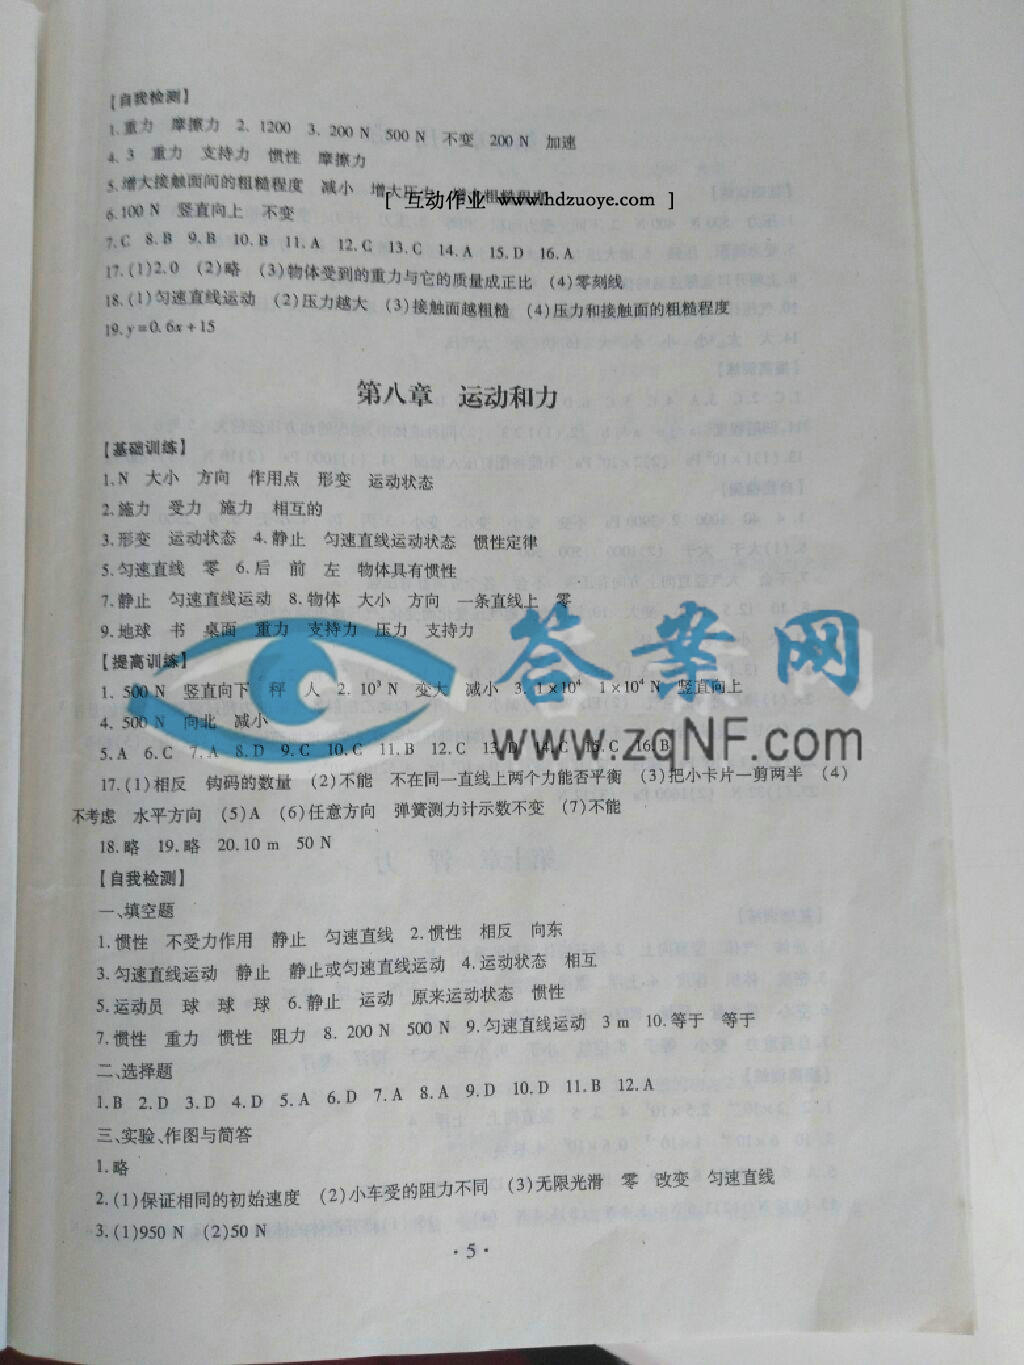 【自我检测】
1.重力 摩擦力 2. 1200 3. 200 N 500 N 不变 200 N 加速
4. 3 重力 支持力 惯性 摩擦力
5.增大接触面间的粗糙程度 减小 增大压力 增大粗糙程度
[ 互动作业 www.hdzuoye.com ]
6.100 N 竖直向上 不变
7.C 8.B 9.B 10.B 11.A 12.C 13.C 14.A 15.D 16.A
17.(1)2.0 (2)略 (3)物体受到的重力与它的质量成正比 (4)零刻线
18.(1)匀速直线运动 (2)压力越大 (3)接触面越粗糙 (4)压力和接触面的粗糙程度
19.y=0.6x+15
第八章 运动和力
【基础训练】
1.N 大小 方向 作用点 形变 运动状态
2.施力 受力 施力 相互的
3.形变 运动状态 4.静止 匀速直线运动状态 惯性定律
5.匀速直线 零 6.后 前 左 物体具有惯性
7.静止 匀速直线运动 8.物体 大小 方向 一条直线上 零
9.地球 书 桌面 重力 支持力 压力 支持力
【提高训练】
1. 500 N 竖直向下 秤 人 2. 10³ N 变大 减小 3. 1×10⁴ 1×10⁴ N 竖直向上
4. 500 N 向北 减小
5.A 6.C 7.A 8.D 9.C 10.C 11.B 12.C 13.D 14.C 15.C 16.B
17.(1)相反 钩码的数量 (2)不能 不在同一直线上两个力能否平衡 (3)把小卡片一剪两半 (4)
不考虑 水平方向 (5)A (6)任意方向 弹簧测力计示数不变 (7)不能
18.略 19.略 20.10 m 50 N
【自我检测】
一、填空题
1.惯性 不受力作用 静止 匀速直线 2.惯性 相反 向东
3.匀速直线运动 静止 静止或匀速直线运动 4.运动状态 相互
5.运动员 球 球 球 6.静止 运动 原来运动状态 惯性
7.惯性 重力 惯性 阻力 8. 200 N 500 N 9.匀速直线运动 3 m 10.等于 等于
二、选择题
1.B 2.D 3.D 4.D 5.A 6.D 7.A 8.A 9.D 10.D 11.B 12.A
三、实验、作图与简答
1.略
2.(1)保证相同的初始速度 (2)小车受的阻力不同 (3)无限光滑 零 改变 匀速直线
3.(1)950 N (2)50 N
· 5 ·
答案网
www.zqNF.com